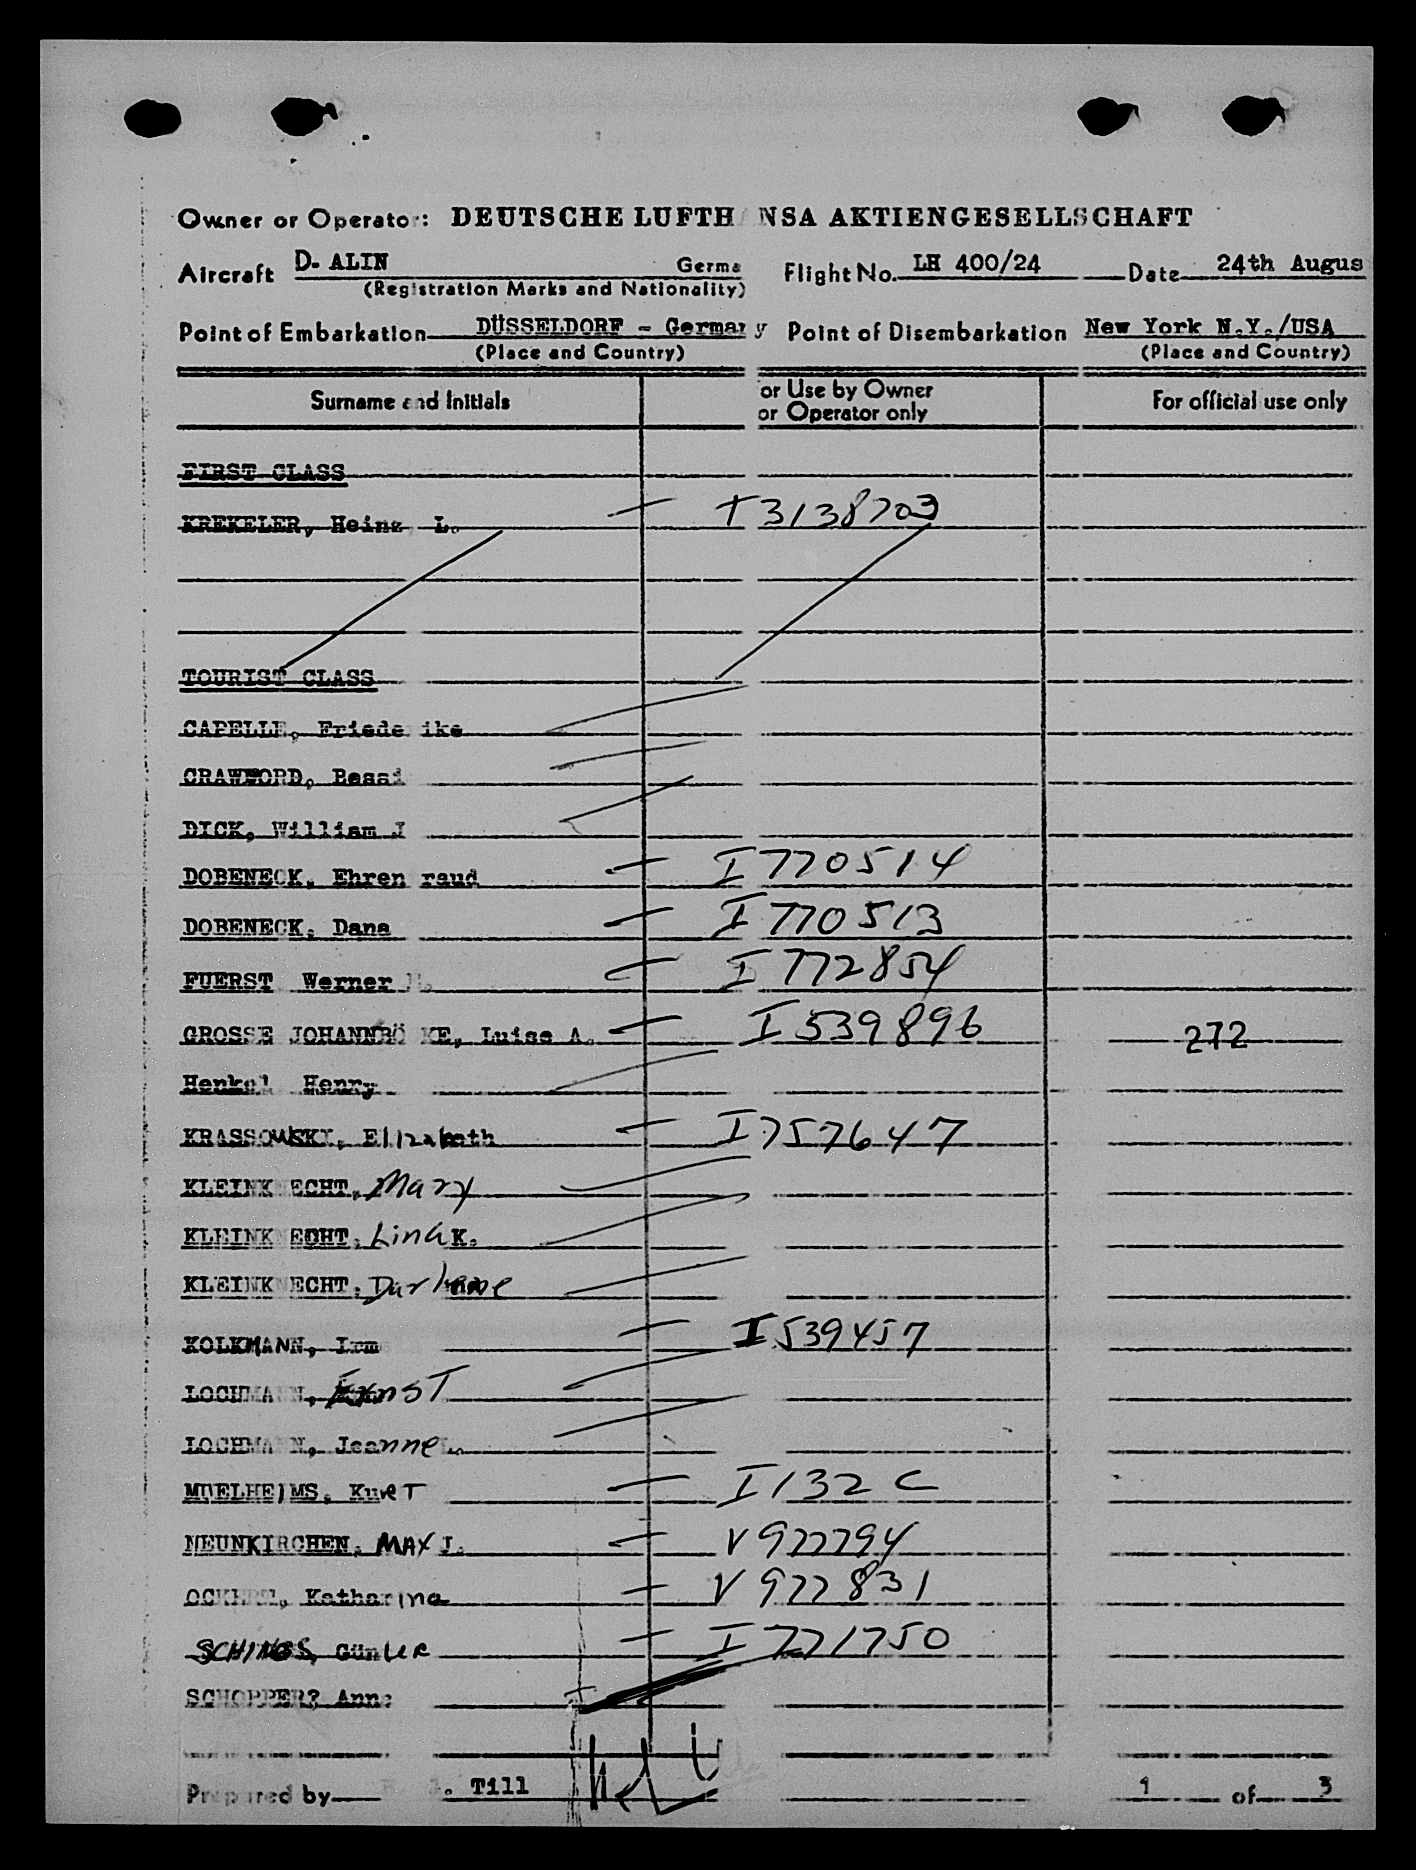 Owner or Operator: DEUTSCHE LUFTHANSA AKTIENGESELLSCHAFT
Aircraft D- ALIN Germa Flight No. LH 400/24 Date 24th Augus
(Registration Marks and Nationality)
Point of Embarkation DÜSSELDORF - Germany Point of Disembarkation New York N.Y./USA
(Place and Country) (Place and Country)
Surname and Initials or Use by Owner or Operator only For official use only
FIRST CLASS
KREKELER, Heinz L. T3138703
TOURIST CLASS
CAPELLE, Friederike
CRAWFORD, Bessi
DICK, William J
DOBENECK, Ehren raud I 770514
DOBENECK, Dana I 770513
FUERST Werner I 772854
GROSSE JOHANNBÖ KE, Luise A. I 539896 272
Henkel Henry
KRASSOWSKI, Elizabeth I 757647
KLEINKNECHT, Mary
KLEINKNECHT, Lina K.
KLEINKNECHT, Darlene
KOLKMANN, Irm I 539457
LOCHMANN, Ernst
LOCHMANN, Jeanne L.
MUELHEIMS, Kurt I 132 C
NEUNKIRCHEN, MAX J. V 977794
Katharina V 977831
SCHINGS, Günter I 771750
SCHOPPER, Anna
Prepared by Till 1 of 3